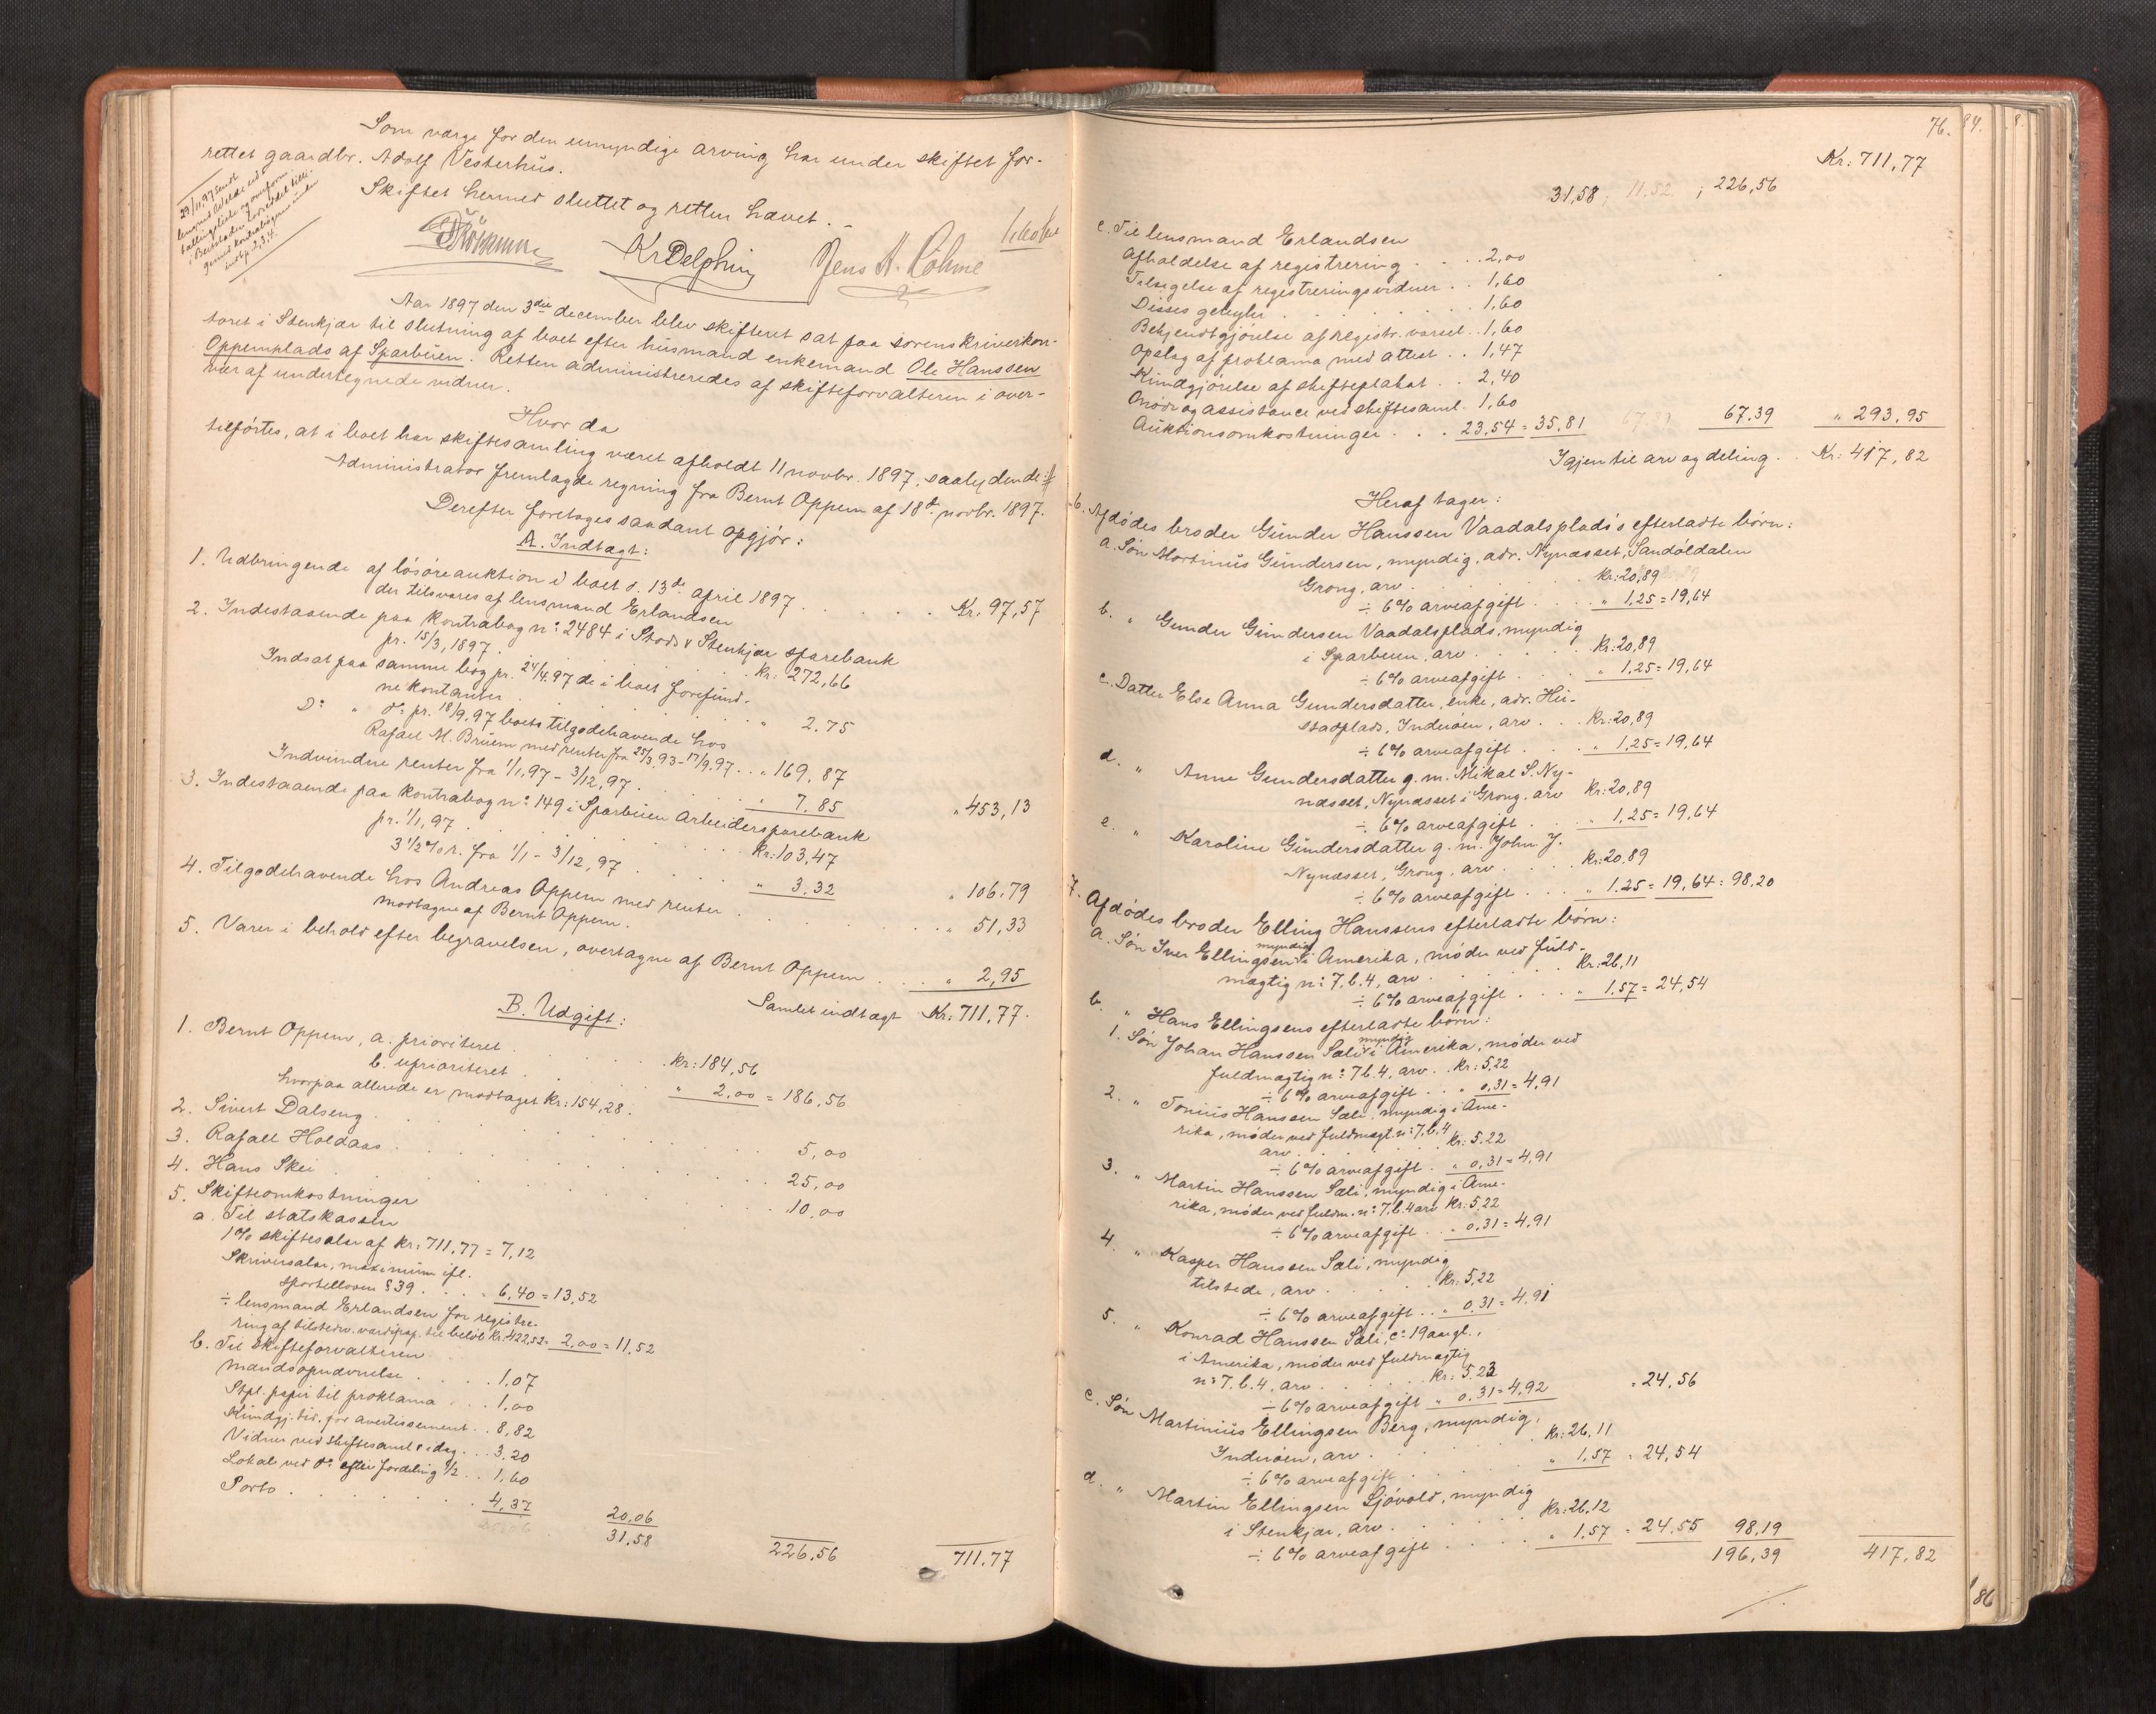 Som værge for den umyndige arving har under skiftet for-
rettet gaardbr. Adolf Vesterhus.
Skiftet hermed sluttet og retten hævet.
29/11.97 sendt
KrDelphin
Jens A. Røhme
Aar 1897 den 3die december blev skifteret sat paa sorenskriverkon-
toret i Stenkjær til slutning af boet efter husmand enkemand Ole Hanssen
Oppemplads af Sparbuen. Retten administreredes af skifteforvalteren i over-
vær af undertegnede vidner.
Hvor da
tilførtes, at i boet har skiftesamling været afholdt 11 novbr. 1897, saalydende:
Administrator fremlagde regning fra Bernt Oppem af 18de novbr. 1897.
Derefter foretoges saadant opgjør:
A. Indtægt:
1. Udbringende af løsøreauktion i boet d. 13de april 1897
der tilsvares af lensmand Erlandsen . . . . Kr. 97,57
2. Indestaaende paa kontrabog no: 2484 i Stods & Stenkjær sparebank
pr. 15/3, 1897 . . . Kr. 272,66
Indsat paa samme bog pr. 24/4.97 de i boet forefund-
ne kontanter . . . " 2.75
Do " do pr. 18/9.97 boets tilgodehavende hos
Rafael M. Bruem med renter fra 25/3.93 - 17/9.97 . . " 169,87
Indvundne renter fra 1/1,97 - 3/12,97 . . " 7.85 " 453,13
3. Indestaaende paa kontrabog no: 149 i Sparbuen Arbeidersparebank
pr. 1/1,97 . . . Kr: 103,47
3 1/2 % r. fra 1/1 - 3/12,97 . . . " 3.32 " 106.79
4. Tilgodehavende hos Andreas Oppem med renter
modtagne af Bernt Oppem . . . " 51,33
5. Varer i behold efter begravelsen, overtagne af Bernt Oppem . . " 2,95
Samlet indtægt Kr. 711,77.
B. Udgift:
1. Bernt Oppem, a. prioriteret . . . Kr: 184,56
b. uprioriteret . . . " 2,00 = 186,56
hvorpaa allerede er modtaget Kr: 154,28.
2. Sivert Dalseng . . . 5,00
3. Rafael Holdaas . . . 25,00
4. Hans Skei . . . 10,00
5. Skifteomkostninger
a. Til statskassen
1% skiftesalær af Kr: 711,77 = 7,12
Skriversalær, maximum ifl.
sportelloven § 39 . . . 6,40 = 13,52
÷ lensmand Erlandsen for registre-
ring af tilstedev. værdipap. til beløb Kr. 422,52 . 2,00 = 11,52
b. Til skifteforvalteren
mandsopnævnelse . . . 1,07
Stpl. papir til proklama . . . 1,00
Kundgj. tid. for avertissement . . 8,82
Vidner ved skiftesaml & idag . . 3,20
Lokal ved do efter fordeling 1/2 . . 1,60
Porto . . . 4,37 20,06
31,58 226,56 711,77
76. 84.
Kr: 711,77
31,58 ; 11,52 ; 226,56
c. Til lensmand Erlandsen
Afholdelse af registrering . . . 2,00
Tilsigelse af registreringsvidner . . 1,60
Disses gebyhr . . . 1,60
Bekjendtgjørelse af registr. varsel . . 1,60
Opslag af proklama med attest . . 1,47
Kundgjørelse af skifteplakat . . 2,40
Møde og assistance ved skiftesaml. 1,60
Auktionsomkostninger . . . 23,54 = 35,81 67,39 " 293,95
Igjen til arv og deling . . Kr: 417,82
Heraf tager:
6. Afdødes broder Gunder Hanssen Vaadalsplads's efterladte børn:
a. Søn Mortinus Gundersen, myndig, adr. Nynæsset, Sandøldalen
Grong, arv . . . Kr: 20,89
÷ 6% arveafgift . . . " 1,25 = 19,64
b. " Gunder Gundersen Vaadalsplads, myndig
i Sparbuen, arv . . . Kr: 20,89
÷ 6% arveafgift . . . " 1,25 = 19,64
c. Datter Else Anna Gundersdatter, enke, adr. Hu-
stadplads, Inderøen, arv . . . Kr: 20,89
÷ 6% arveafgift . . . " 1,25 = 19,64
d. " Anne Gundersdatter g. m. Mikal S. Ny-
næsset, Nynæsset i Grong, arv Kr: 20,89
÷ 6% arveafgift . . . " 1,25 = 19,64
e. " Karoline Gundersdatter g. m. John J.
Nynæsset, Grong, arv . . . Kr: 20.89
÷ 6% arveafgift . . . " 1.25 = 19,64 = 98,20
7. Afdødes broder Elling Hanssens efterladte børn:
a. Søn Iver Ellingsen myndig i Amerika, møder ved fuld-
mægtig no: 7.b.4, arv . . . Kr: 26,11
÷ 6% arveafgift . . . " 1,57 = 24,54
b. " Hans Ellingsens efterladte børn:
1. Søn Johan Hanssen Sæli myndig i Amerika, møder ved
fuldmægtig no: 7b.4, arv . . Kr: 5,22
÷ 6% arveafgift . . " 0,31 = 4,91
2. " Tonius Hanssen Sæli, myndig i Ame-
rika, møder ved fuldmægt. no: 7.b.4
arv . . . Kr: 5.22
÷ 6% arveafgift . " 0,31 = 4,91
3. " Martin Hanssen Sæli, myndig i Ame-
rika, møder ved fuldm. no: 7.b.4 arv Kr: 5,22
÷ 6% arveafgift . . " 0,31 = 4,91
4. " Kasper Hanssen Sæli, myndig
tilstede, arv . . . Kr: 5,22
÷ 6% arveafgift . . " 0,31 = 4,91
5. " Konrad Hanssen Sæli, ca: 19 aargl.,
i Amerika, møder ved fuldmægtig
no: 7.b.4, arv . . . Kr: 5.23
÷ 6% arveafgift " 0.31 = 4,92 = 24,56
c. Søn Martinius Ellingsen Berg, myndig,
Inderøen, arv . . . Kr: 26,11
÷ 6% arveafgift . . . " 1,57 = 24,54
d. " Martin Ellingsen Sjøvold, myndig
i Stenkjær, arv . . . Kr: 26,12
÷ 6% arveafgift . . . " 1,57 = 24,55 98,19
196,39 417,82
86